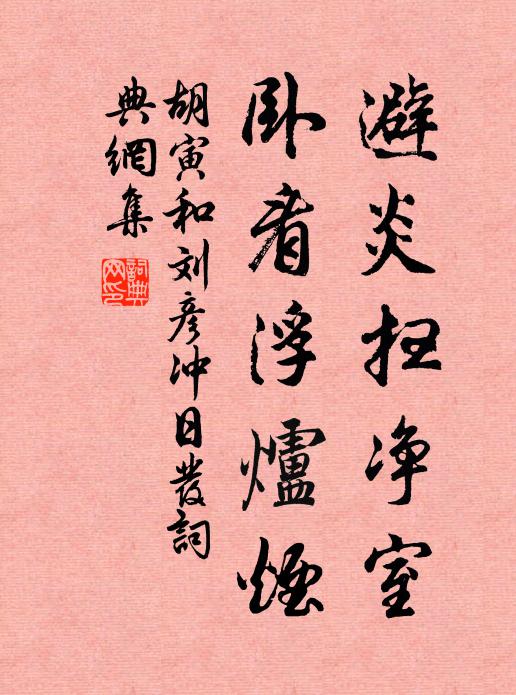 避炎扫净室
卧看浮爐煙
胡寅和刘彦冲日發詞
典網集
詞典網印